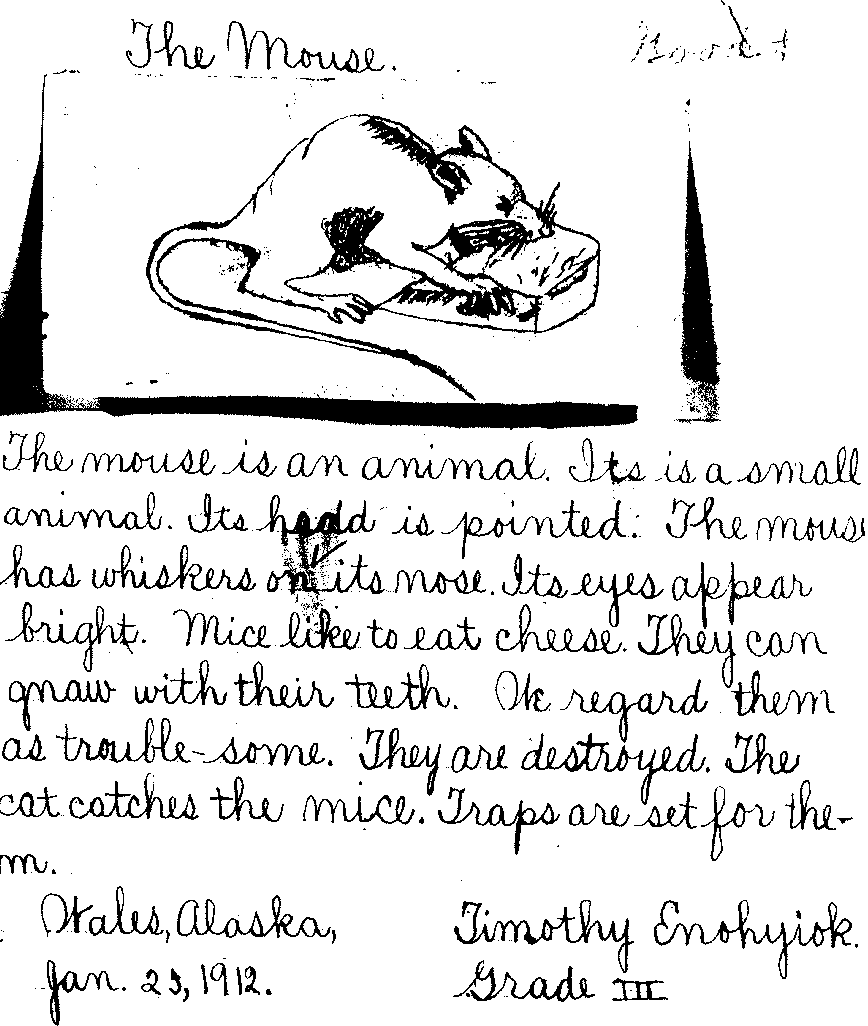 The Mouse.
The mouse is an animal. Its is a small
animal. Its hadd is pointed. The mouse
has whiskers on its nose. Its eyes appear
bright. Mice like to eat cheese. They can
gnaw with their teeth. We regard them
as trouble-some. They are destroyed. The
cat catches the mice. Traps are set for the-
m.
Wales, Alaska, Timothy Enohyiok.
Jan. 23, 1912. Grade III